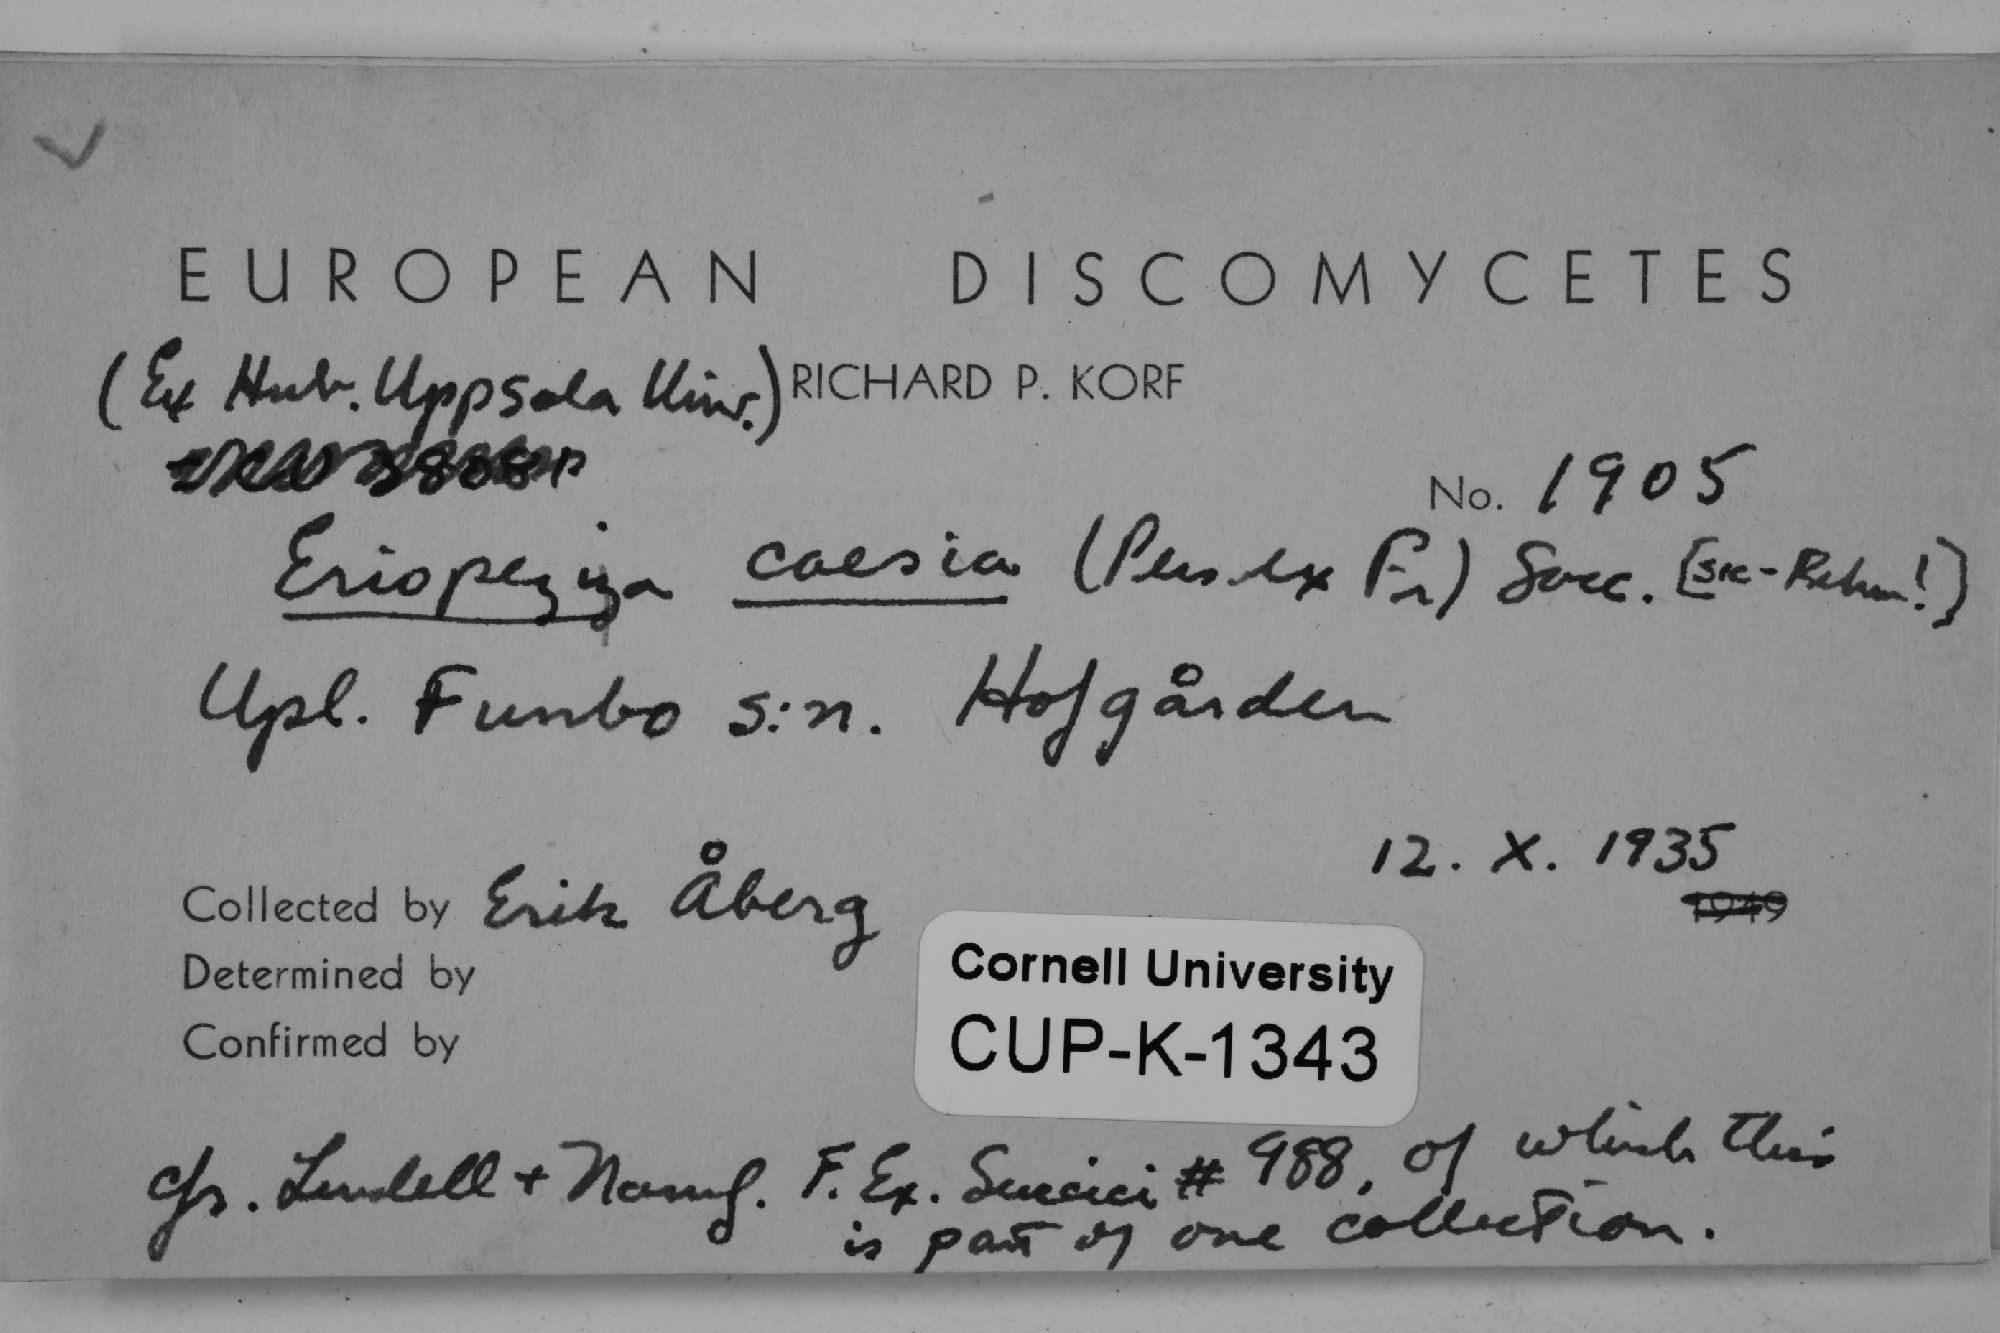 EUROPEAN DISCOMYCETES
(Ex Herb. Uppsala Univ.) RICHARD P. KORF
No. 1905
Eriopeziza caesia (Pers. ex Fr) Sacc. [sic - Rehm!]
Upl. Funbo s:n. Hofgården
12. X. 1935
1949
Collected by Erik Åberg
Determined by
Confirmed by
Cornell University
CUP-K-1343
cfr. Lundell + Nannf. F. Ex. Suecici # 988, of which this
is part of one collection.